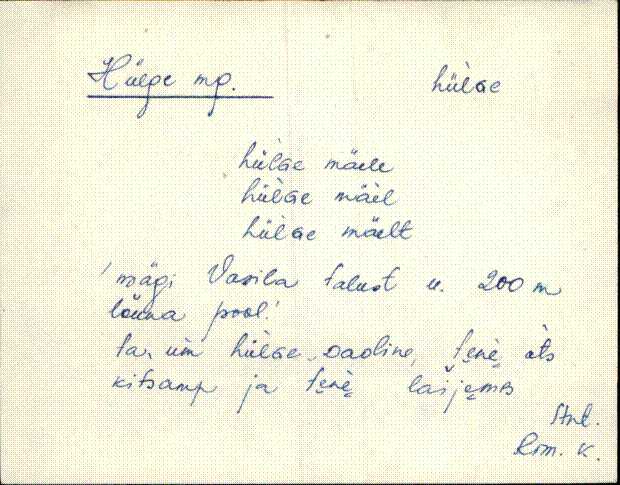 Hülge mg. hül̀ge
hül̀ge mäele
hül̀ge mäèl
hül̀ge mäelt
'mägi Vasila talust u. 200 m
lõuna pool.'
ta, üìn hül̀ge saadline, tęnè òts
kitsamp ja tęnè lašjęmęs
Rm. K.